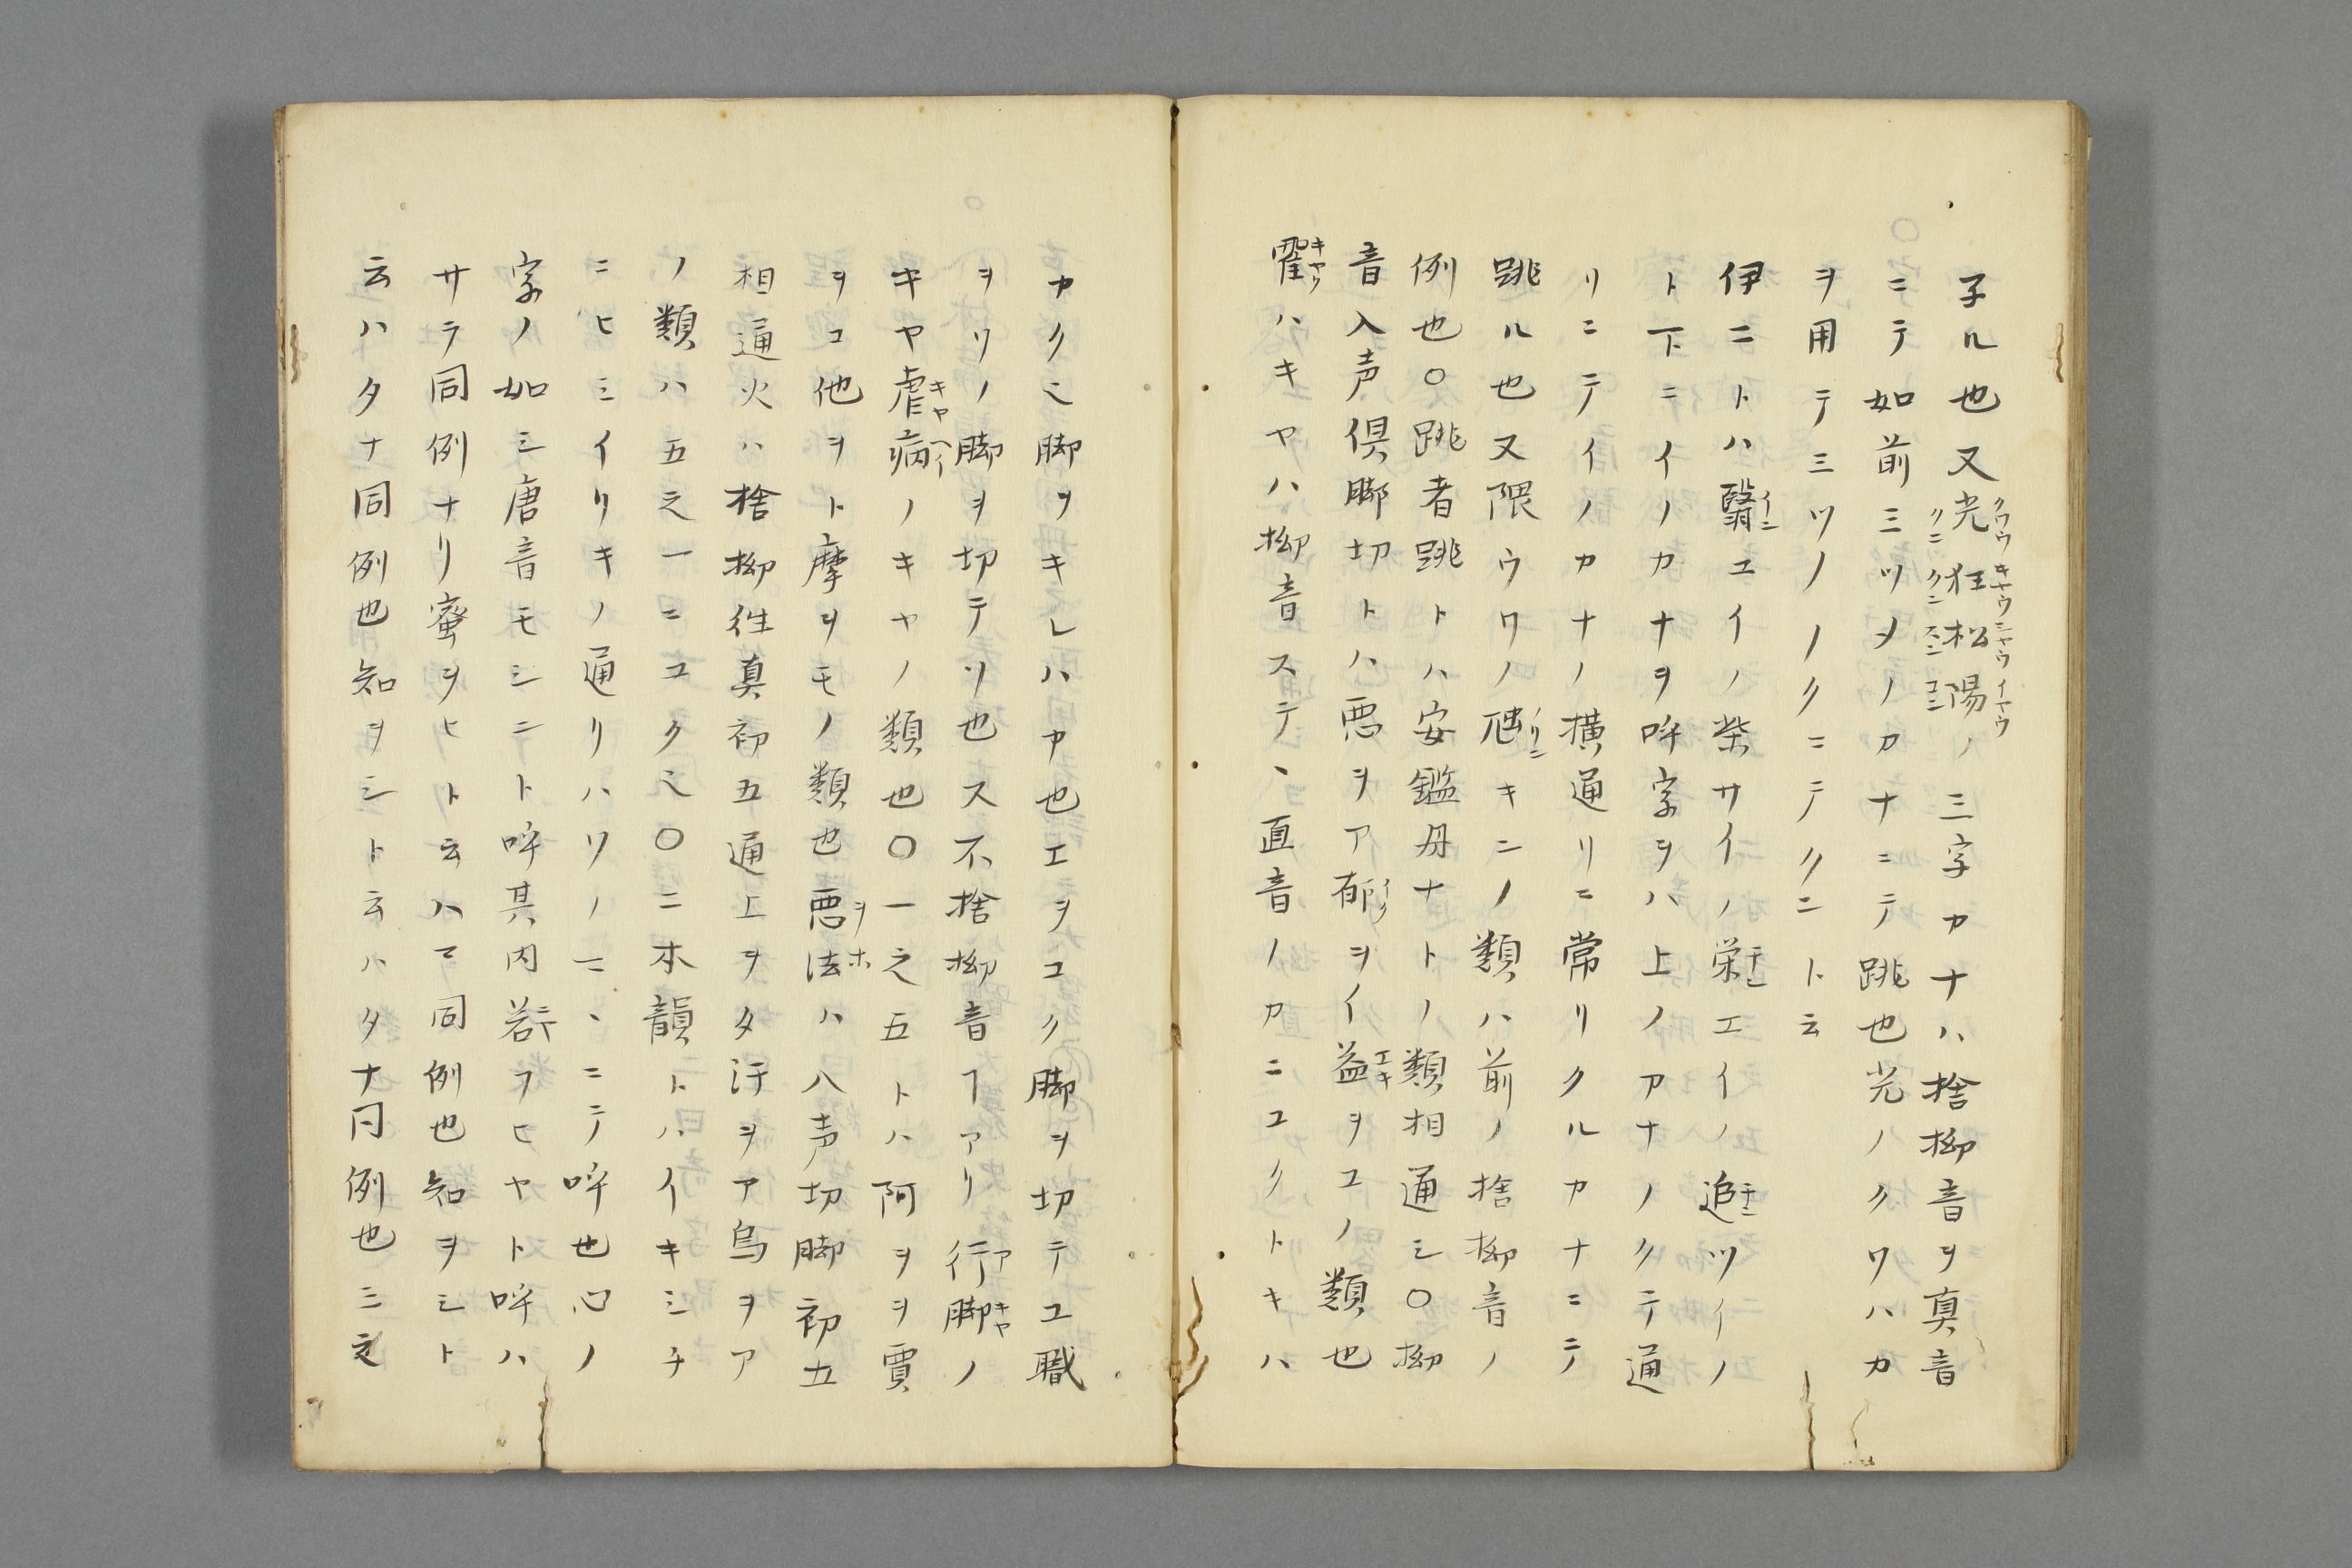 子ル也又光狂松陽ノ三字カナハ捨拗音ヲ真音
ニテ如前三ツメノカナニテ跳也光ノクワハカ
ヲ用テ三ツノノクニテクニト云
伊ニトハ翳エイノ柴サイノ栄エイノ追ツイノ
ト下ニイノカナヲ呼字ヲハ上ノアナノクテ通
リニテイノカナノ横通リニ常リクルカナニテ
跳ル也又隈ウワノキニノ類ハ前ノ捨拗音ノ
例也〇跳者跳トハ安鑑丹ナトノ類相通ミ〇拗
音入声倶脚切トハ悪ヲア郁ヲイ益ヲユノ類也
钁ハキヤハ拗音ステヽ直音ノカニユクトキハ
カクミ脚ヲキレハカ也エヲユク脚ヲ切テユ職
ヲリノ脚ヲ切テソ也ス不捨拗音ヿアリ行脚ノ
キヤ虐病ノキヤノ類也〇一之五トハ阿ヲヲ賈
ヲコ他ヲト摩ヲモノ類也悪法ハ入声切脚初五
相通火ハ捨拗徃真初五通上ヲタ汗ヲア烏ヲア
ノ類ハ五之一ニユクミ〇ニ本韻トハイキシチ
ニヒミイリキノ通リハリノニヽニテ呼也心ノ
字ノ如ミ唐音モシニト呼其内若フヒヤト呼ハ
サテ同例ナリ蜜ヲヒト云ハマ同例也知ヲシト
云ハタナ同例也知ヲシト云ハタナ同例也三之